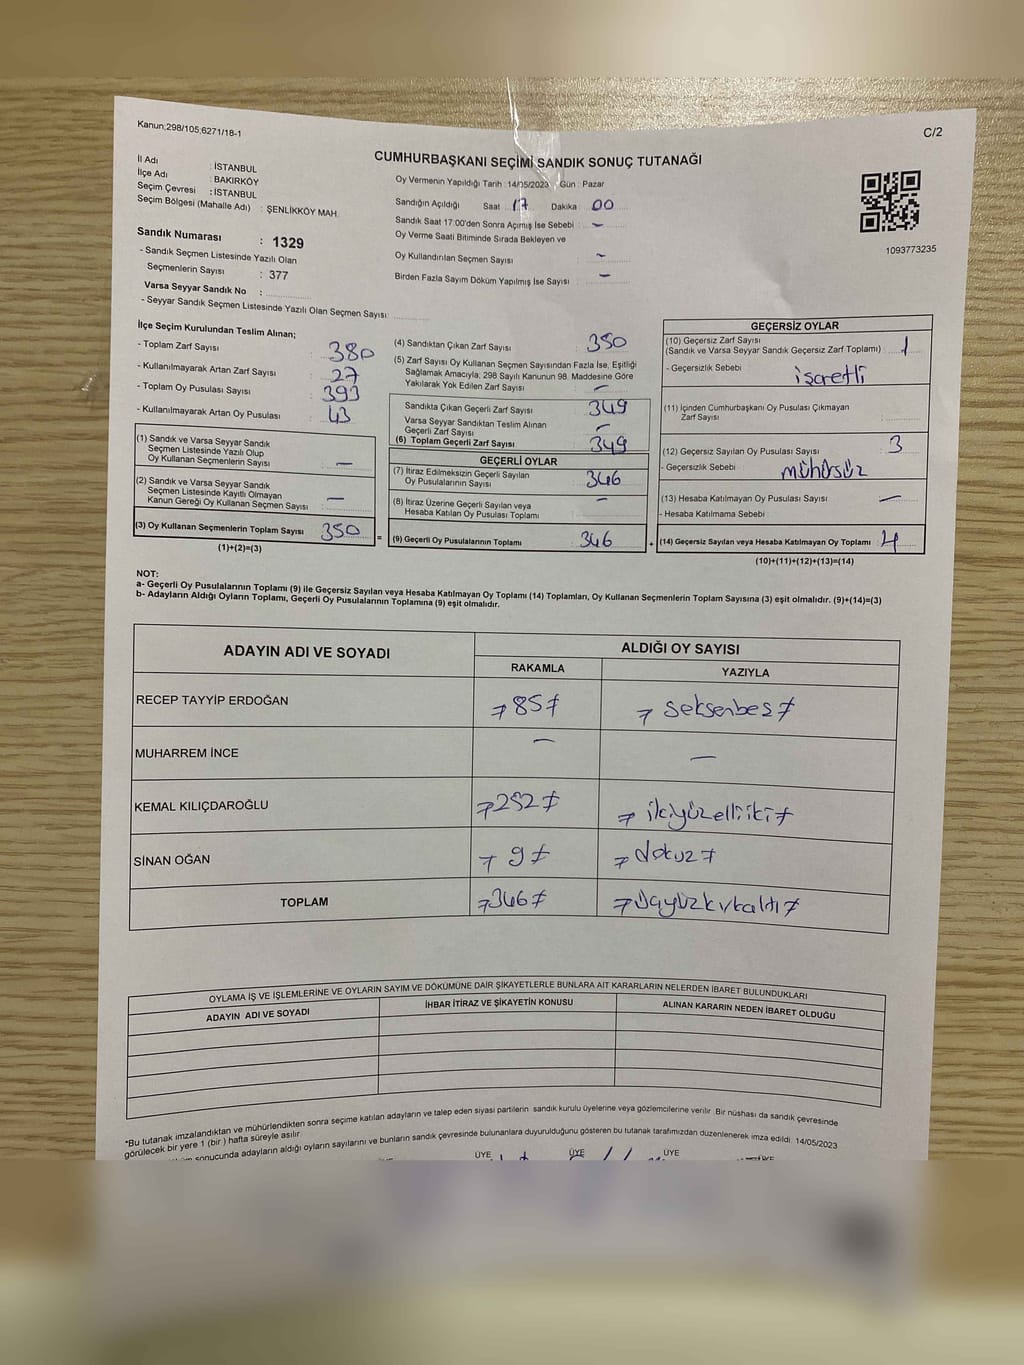 Kanun;298/105;6271/18-1
C/2
CUMHURBAŞKANI SEÇİMİ SANDIK SONUÇ TUTANAĞI
İl Adı : İSTANBUL
İlçe Adı : BAKIRKÖY
Seçim Çevresi : İSTANBUL
Seçim Bölgesi (Mahalle Adı) : ŞENLİKKÖY MAH.
Sandık Numarası : 1329
- Sandık Seçmen Listesinde Yazılı Olan
Seçmenlerin Sayısı : 377
Varsa Seyyar Sandık No :
- Seyyar Sandık Seçmen Listesinde Yazılı Olan Seçmen Sayısı:
Oy Vermenin Yapıldığı Tarih : 14/05/2023 Gün : Pazar
Sandığın Açıldığı Saat 17 Dakika 00
Sandık Saat 17:00'den Sonra Açımış İse Sebebi : -
Oy Verme Saati Bitiminde Sırada Bekleyen ve
Oy Kullandırılan Seçmen Sayısı : -
Birden Fazla Sayım Döküm Yapılmış İse Sayısı : -
1093773235
İlçe Seçim Kurulundan Teslim Alınan;
- Toplam Zarf Sayısı : 380
- Kullanılmayarak Artan Zarf Sayısı : 27
- Toplam Oy Pusulası Sayısı : 393
- Kullanılmayarak Artan Oy Pusulası : 43
(1) Sandık ve Varsa Seyyar Sandık
Seçmen Listesinde Yazılı Olup
Oy Kullanan Seçmenlerin Sayısı : -
(2) Sandık ve Varsa Seyyar Sandık
Seçmen Listesinde Kayıtlı Olmayan
Kanun Gereği Oy Kullanan Seçmen Sayısı : -
(3) Oy Kullanan Seçmenlerin Toplam Sayısı 350
(1)+(2)=(3)
(4) Sandıktan Çıkan Zarf Sayısı : 350
(5) Zarf Sayısı Oy Kullanan Seçmen Sayısından Fazla İse, Eşitliği
Sağlamak Amacıyla, 298 Sayılı Kanunun 98. Maddesine Göre
Yakılarak Yok Edilen Zarf Sayısı : -
Sandıkta Çıkan Geçerli Zarf Sayısı : 349
Varsa Seyyar Sandıktan Teslim Alınan
Geçerli Zarf Sayısı : -
(6) Toplam Geçerli Zarf Sayısı : 349
GEÇERLİ OYLAR
(7) İtiraz Edilmeksizin Geçerli Sayılan
Oy Pusulalarının Sayısı : 346
(8) İtiraz Üzerine Geçerli Sayılan veya
Hesaba Katılan Oy Pusulası Toplamı : -
= (9) Geçerli Oy Pusulalarının Toplamı : 346
GEÇERSİZ OYLAR
(10) Geçersiz Zarf Sayısı
(Sandık ve Varsa Seyyar Sandık Geçersiz Zarf Toplamı) : 1
- Geçersizlik Sebebi : işaretli
(11) İçinden Cumhurbaşkanı Oy Pusulası Çıkmayan
Zarf Sayısı :
(12) Geçersiz Sayılan Oy Pusulası Sayısı : 3
- Geçersizlik Sebebi : mühürsüz
(13) Hesaba Katılmayan Oy Pusulası Sayısı : -
- Hesaba Katılmama Sebebi :
+ (14) Geçersiz Sayılan veya Hesaba Katılmayan Oy Toplamı : 4
(10)+(11)+(12)+(13)=(14)
NOT:
a- Geçerli Oy Pusulalarının Toplamı (9) ile Geçersiz Sayılan veya Hesaba Katılmayan Oy Toplamı (14) Toplamları, Oy Kullanan Seçmenlerin Toplam Sayısına (3) eşit olmalıdır. (9)+(14)=(3)
b- Adayların Aldığı Oyların Toplamı, Geçerli Oy Pusulalarının Toplamına (9) eşit olmalıdır.
ADAYIN ADI VE SOYADI
ALDIĞI OY SAYISI
RAKAMLA YAZIYLA
RECEP TAYYİP ERDOĞAN 85 seksenbeş
MUHARREM İNCE - -
KEMAL KILIÇDAROĞLU 252 ikiyüzelliiki
SİNAN OĞAN 9 dokuz
TOPLAM 346 üçyüzkırkaltı
OYLAMA İŞ VE İŞLEMLERİNE VE OYLARIN SAYIM VE DÖKÜMÜNE DAİR ŞİKAYETLERLE BUNLARA AİT KARARLARIN NELERDEN İBARET BULUNDUKLARI
ADAYIN ADI VE SOYADI İHBAR İTİRAZ VE ŞİKAYETİN KONUSU ALINAN KARARIN NEDEN İBARET OLDUĞU
*Bu tutanak imzalandıktan ve mühürlendikten sonra seçime katılan adayların ve talep eden siyasi partilerin sandık kurulu üyelerine veya gözlemcilerine verilir. Bir nüshası da sandık çevresinde
görülecek bir yere 1 (bir) hafta süreyle asılır.
sonucunda adayların aldığı oyların sayılarını ve bunların sandık çevresinde bulunanlara duyurulduğunu gösteren bu tutanak tarafımızdan düzenlenerek imza edildi. 14/05/2023
ÜYE ÜYE ÜYE ÜYE